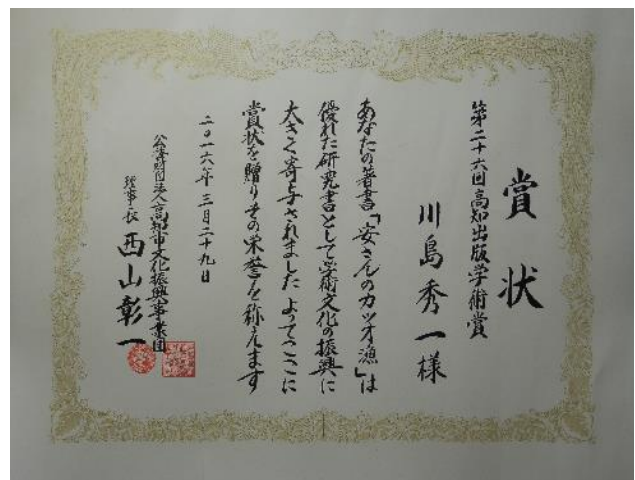 賞状
第二十六回高知出版学術賞
川島秀一様
あなたの著書「安さんのカツオ漁」は
優れた研究書として学術文化の振興に
大きく寄与されました よってここに
賞状を贈りその栄誉を称えます
二〇一六年三月二十九日
公益財団法人高知市文化振興事業団
理事長 西山彰一